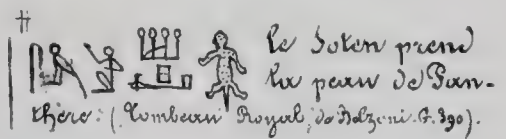 le Soten prend
la peau de Pan-
thère: (Tombeau Royal, de Belzoni.